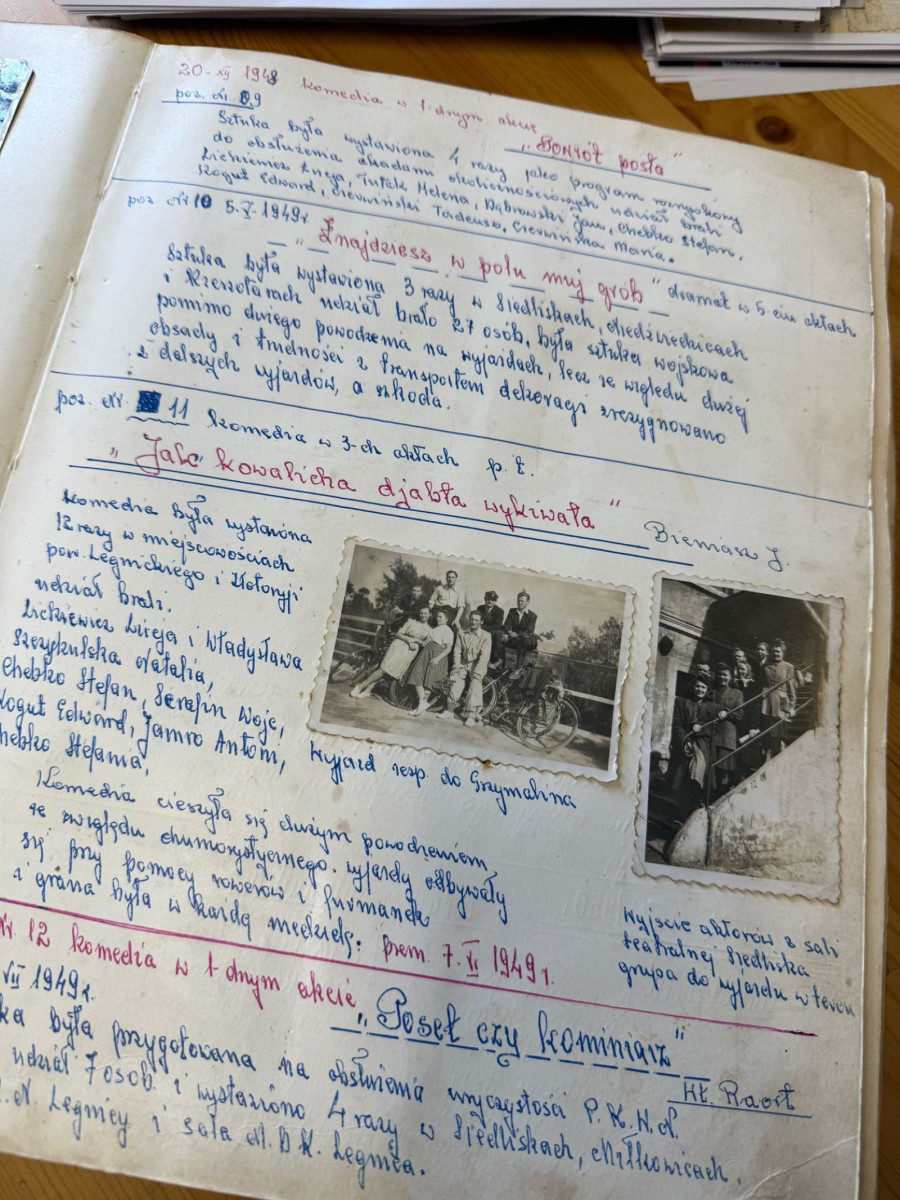 20-XII 1948 komedia w 1-dnym akcie
poz. Nr. 9 "Powrót posła"
Sztuka była wystawiona 4 razy jako program rozrywkowy
do obsłużenia akademi okolicznościowych udział brali
Lickiewicz Łucja, Tutek Helena, Dąbrowski Jan, Chebko Stefan,
Kogut Edward, Czerwiński Tadeusz, Czerwińska Maria.
poz Nr 10 5.V.1949r
"Znajdziesz w polu muj grób" dramat w 5-ciu aktach
Sztuka była wystawiona 3 razy w Siedliskach, Niedźwiedzicach
i Rzeszotarach udział brało 27 osób, była sztuka wojskowa
pomimo dużego powodzenia na wyjazdach, lecz ze względu dużej
obsady i trudności z transportem dekoracji zrezygnowano
z dalszych wyjazdów, a szkoda.
poz. Nr. 11 komedia w 3-ch aktach p.t.
"Jak kowalicha djabła wykiwała"
Bieniasz J.
Komedia była wystawiona
12 razy w miejscowościach
pow. Legnickiego i Złotoryji
udział brali.
Lickiewicz Łucja i Władysława
Szczykulska Natalia,
Chebko Stefan, Serafin Woje,
Kogut Edward, Jamro Antoni,
Chebko Stefania,
Wyjazd zesp do Grzymalina
Komedia cieszyła się dużym powodzeniem
ze względu chumorystycznego. wyjazdy odbywały
się przy pomocy rowerów i furmanek
i grana była w każdą niedzielę: prem. 7.VI 1949r.
Wyjście aktorów z sali
teatralnej Siedliska
grupa do wyjazdu w teren
Nr. 12 komedia w 1-dnym akcie
VII 1949r.
"Poseł czy kominiarz"
Wł. Raort
była przygotowana na obsłużenia uroczystości P.K.W.N.
udział 7 osób i wystawiono 4 razy w Siedliskach, Miłkowicach,
Legnicy i sala M.D.K. Legnica.